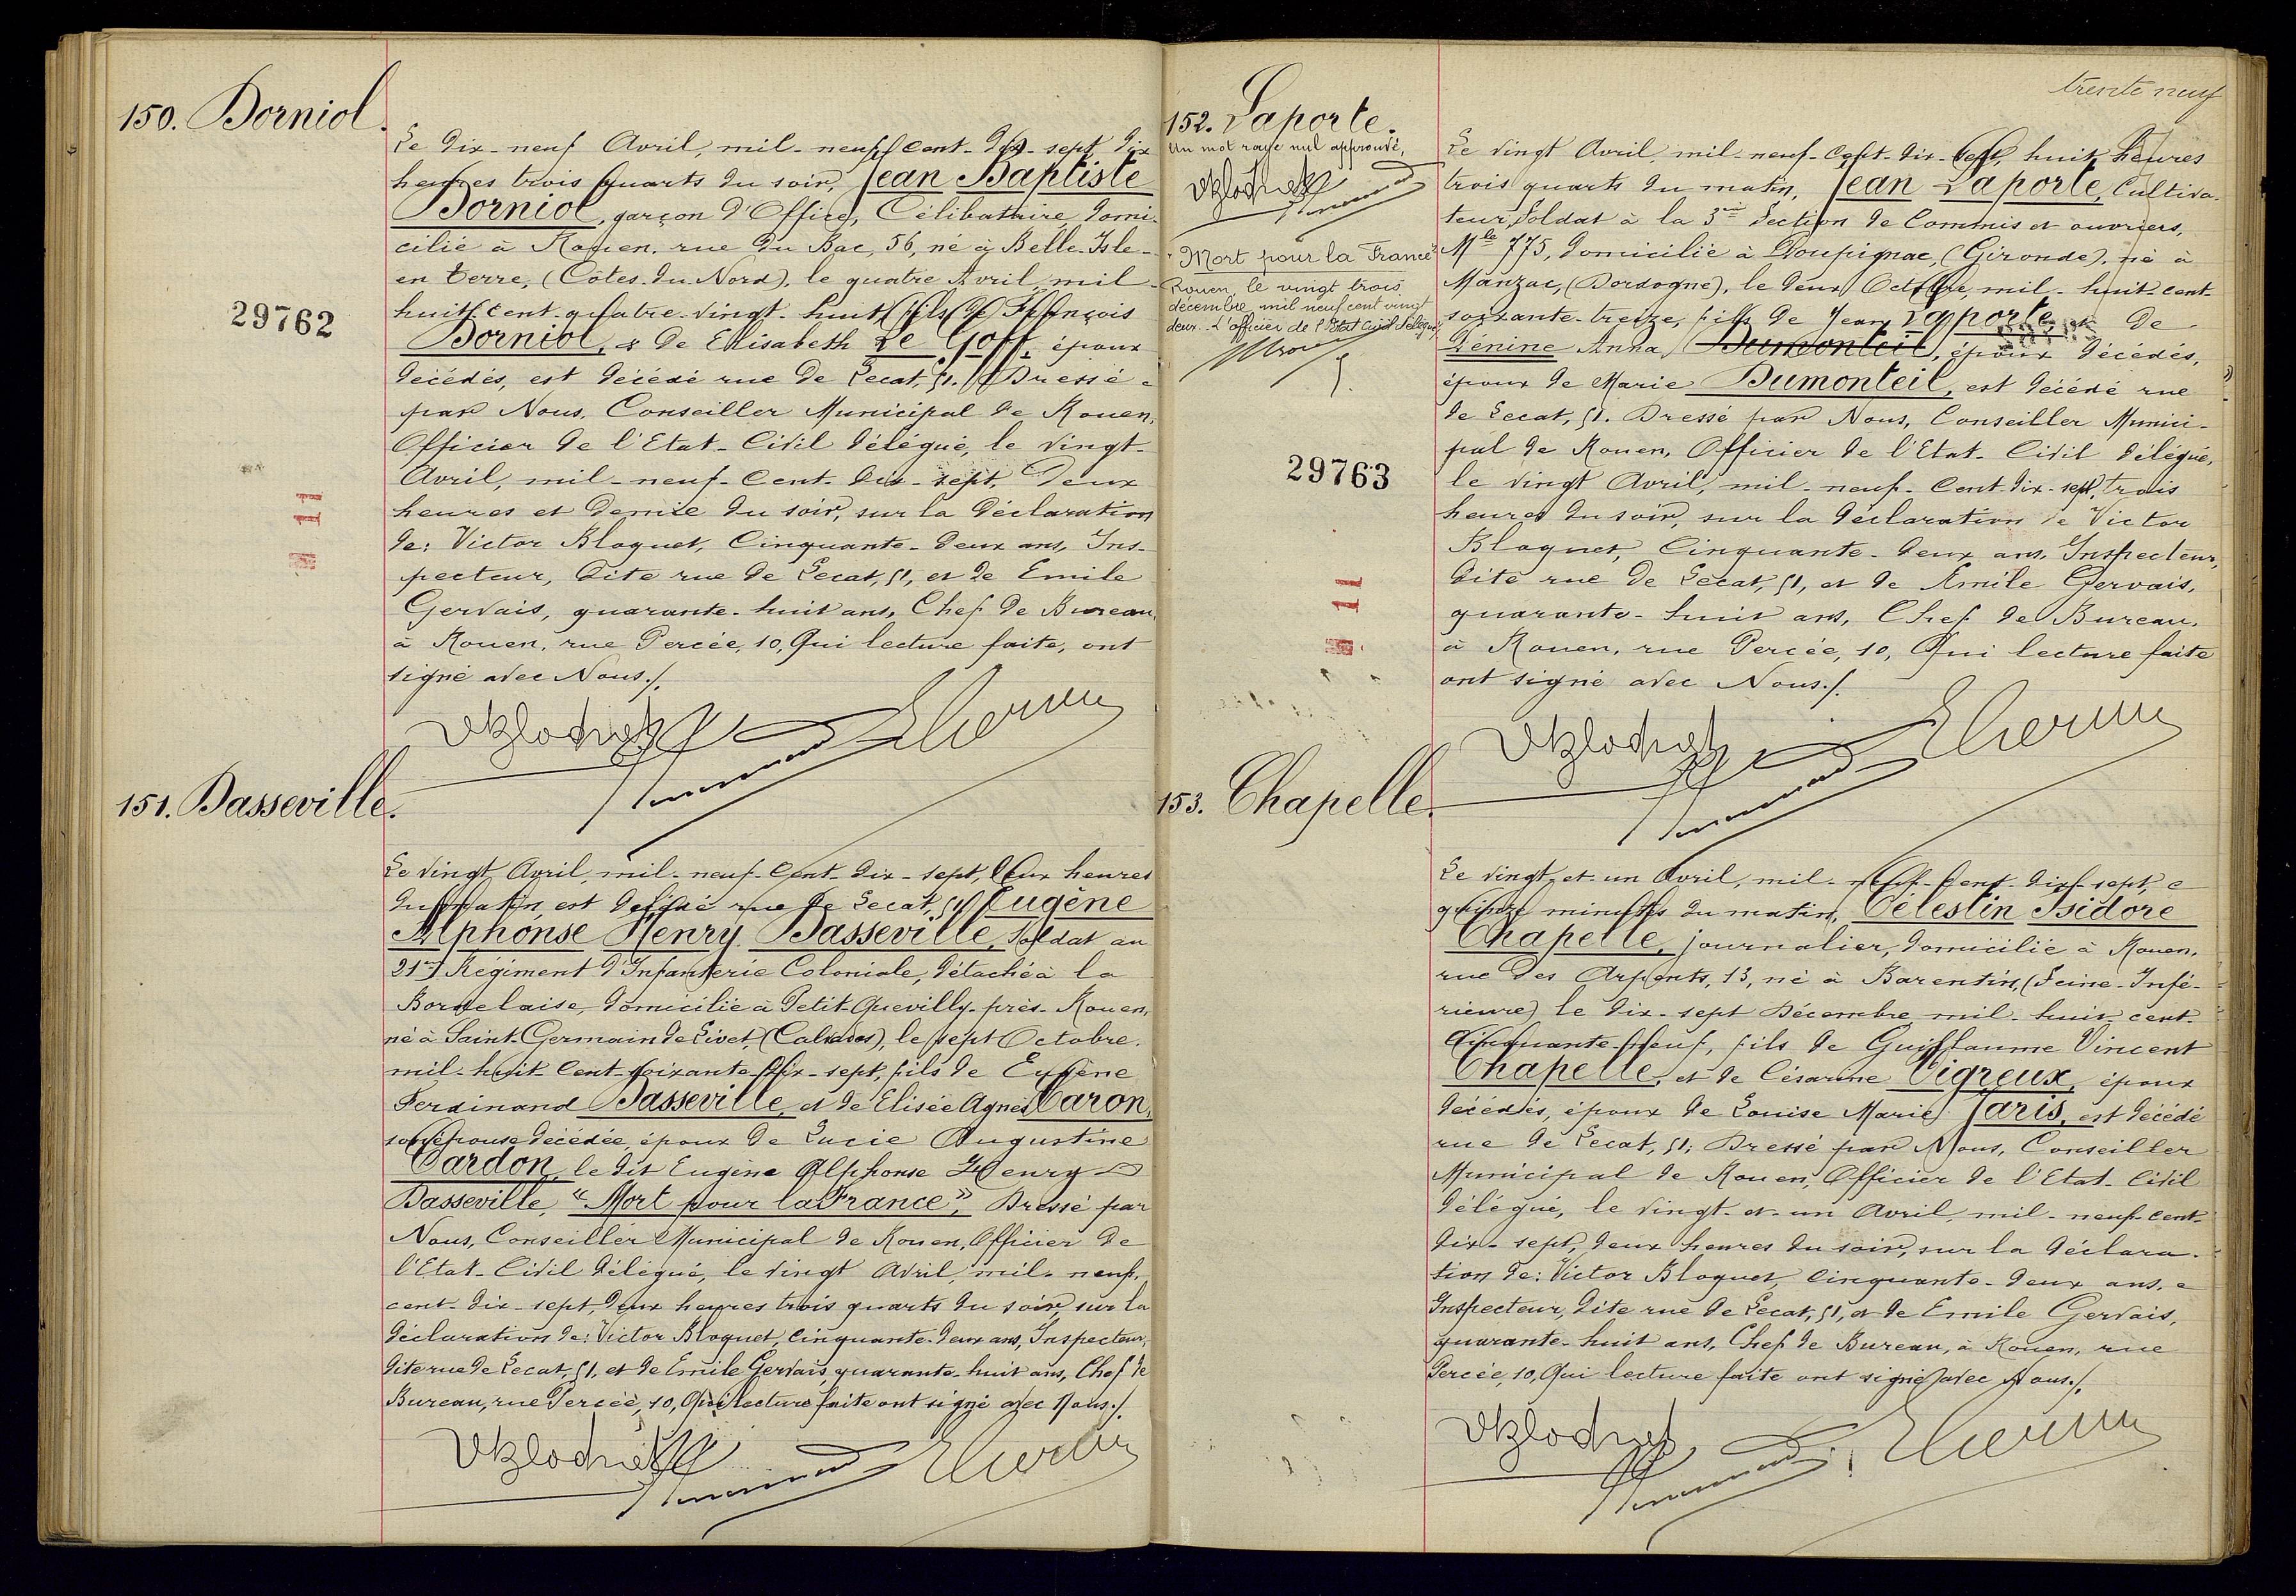 150. Borniol.
Le dix-neuf Avril, mil-neuf-cent-dix-sept, dix
heures trois quarts du soir, Jean Baptiste
Borniol, garçon d'Office, Célibataire, domi-
cilié à Rouen, rue du Bac, 56, né à Belle-Isle-
en terre, (Côtes-du-Nord), le quatre Avril, mil-
huit-cent-quatre-vingt-huit, fils de François
Borniol, & de Elisabeth Le Goff, époux
décédés, est décédé rue de Lecat, 51. Dressé
par Nous, Conseiller Municipal de Rouen,
Officier de l'Etat-Civil délégué, le vingt-
Avril, mil-neuf-cent-dix-sept, deux
heures et demie du soir, sur la déclaration
de: Victor Bloquet, Cinquante-deux ans, Ins-
pecteur, dite rue de Lecat, 51, et de Emile
Gervais, quarante-huit ans, Chef de Bureau,
à Rouen, rue Percée, 10, Qui lecture faite, ont
signé avec Nous./.
29762
11
151. Basseville.
Le vingt Avril, mil-neuf-cent-dix-sept, deux heures
du matin, est décédé rue de Lecat, 51, Eugène
Alphonse Henry Basseville, Soldat au
21me Régiment d'Infanterie Coloniale, détaché à la
Bordelaise, domicilié à Petit-Quevilly-près-Rouen,
né à Saint-Germain de Livet, (Calvados), le sept Octobre,
mil-huit-cent-soixante-dix-sept, fils de Eugène
Ferdinand Basseville, et de Elisée Agnès Caron,
son épouse décédée, époux de Lucie Augustine
Cardon, le dit Eugène Alphonse Henry
Basseville, "Mort pour la France". Dressé par
Nous, Conseiller Municipal de Rouen, Officier de
l'Etat-Civil délégué, le vingt Avril, mil-neuf-
cent-dix-sept, deux heures trois quarts du soir, sur la
déclaration de: Victor Bloquet, Cinquante-deux ans, Inspecteur,
dite rue de Lecat, 51, et de Emile Gervais, quarante-huit ans, Chef de
Bureau, rue Percée, 10, Qui lecture faite ont signé avec Nous./.
trente neuf
152. Laporte.
Un mot rayé nul approuvé,
"Mort pour la France"
Rouen, le vingt trois
décembre mil neuf cent vingt
deux. L'officier de l'Etat Civil délégué,
29763
11
Le vingt Avril, mil-neuf-cent-dix-sept, huit heures
trois quarts du matin, Jean Laporte, Cultiva-
teur, Soldat à la 3me Section de Commis et ouvriers,
Mle 775, domicilié à Doupignac, (Gironde), né à
Manzac, (Dordogne), le deux Octobre, mil-huit-cent-
soixante-treize, fils de Jean Laporte, & de
Dénine Anna Dumonteil, époux décédés,
époux de Marie Dumonteil, est décédé rue
de Lecat, 51. Dressé par Nous, Conseiller Munici-
pal de Rouen, Officier de l'Etat-Civil délégué,
le vingt Avril, mil-neuf-cent-dix-sept, trois
heures du soir, sur la déclaration de Victor
Bloquet, Cinquante-deux ans, Inspecteur,
dite rue de Lecat, 51, et de Emile Gervais,
quarante-huit ans, Chef de Bureau,
à Rouen, rue Percée, 10, Qui lecture faite
ont signé avec Nous./.
153. Chapelle.
Le vingt-et-un Avril, mil-neuf-cent-dix-sept,
quinze minutes du matin, Célestin Isidore
Chapelle, journalier, domicilié à Rouen,
rue des Arpents, 13, né à Barentin, (Seine-Infé-
rieure) le dix-sept Décembre mil-huit-cent-
cinquante-neuf, fils de Guillaume Vincent
Chapelle, et de Césarine Vigreux, époux
décédés, époux de Louise Marie Paris, est décédé
rue de Lecat, 51; Dressé par Nous, Conseiller
Municipal de Rouen, Officier de l'Etat-Civil
délégué, le vingt-et-un Avril, mil-neuf-cent-
dix-sept, deux heures du soir, sur la déclara-
tion de: Victor Bloquet, Cinquante-deux ans,
Inspecteur, dite rue de Lecat, 51, et de Emile Gervais,
quarante-huit ans, Chef de Bureau, à Rouen, rue
Percée, 10, Qui lecture faite ont signé avec Nous./.